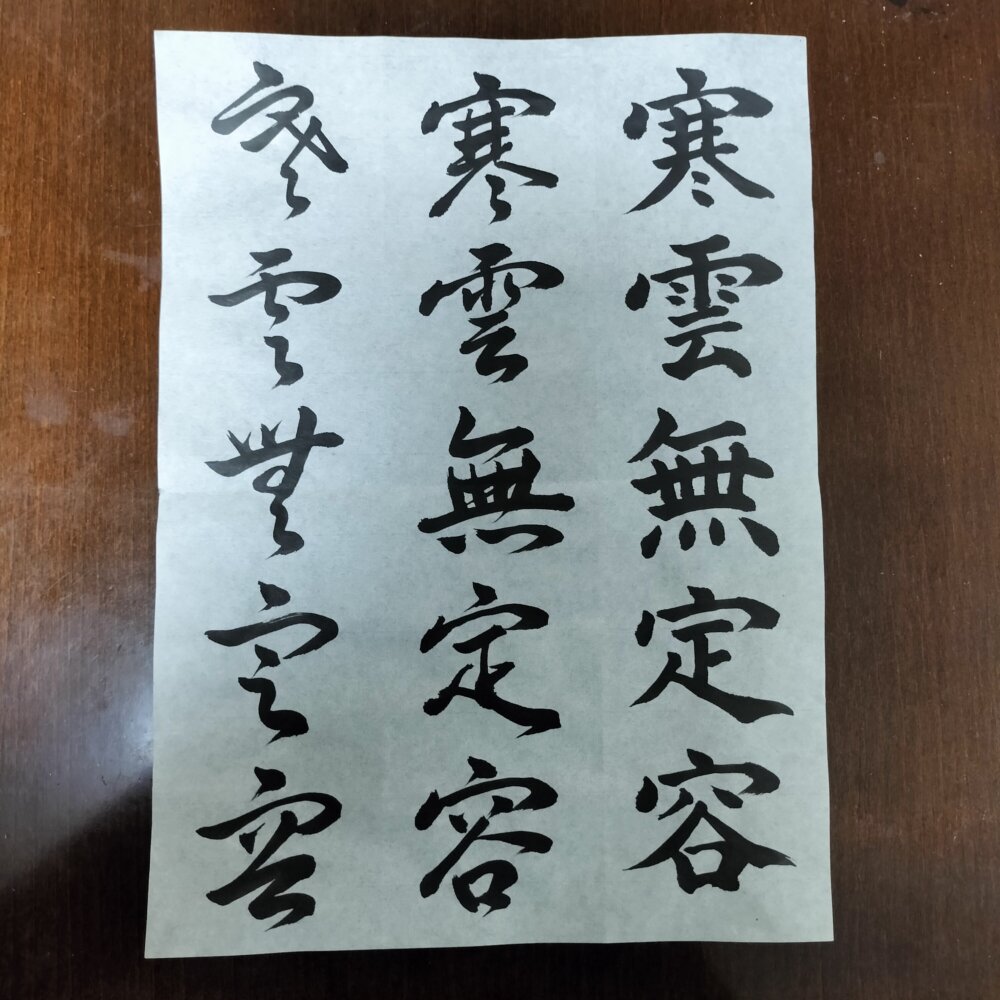 寒雲無定容
寒雲無定容
寒雲無定容